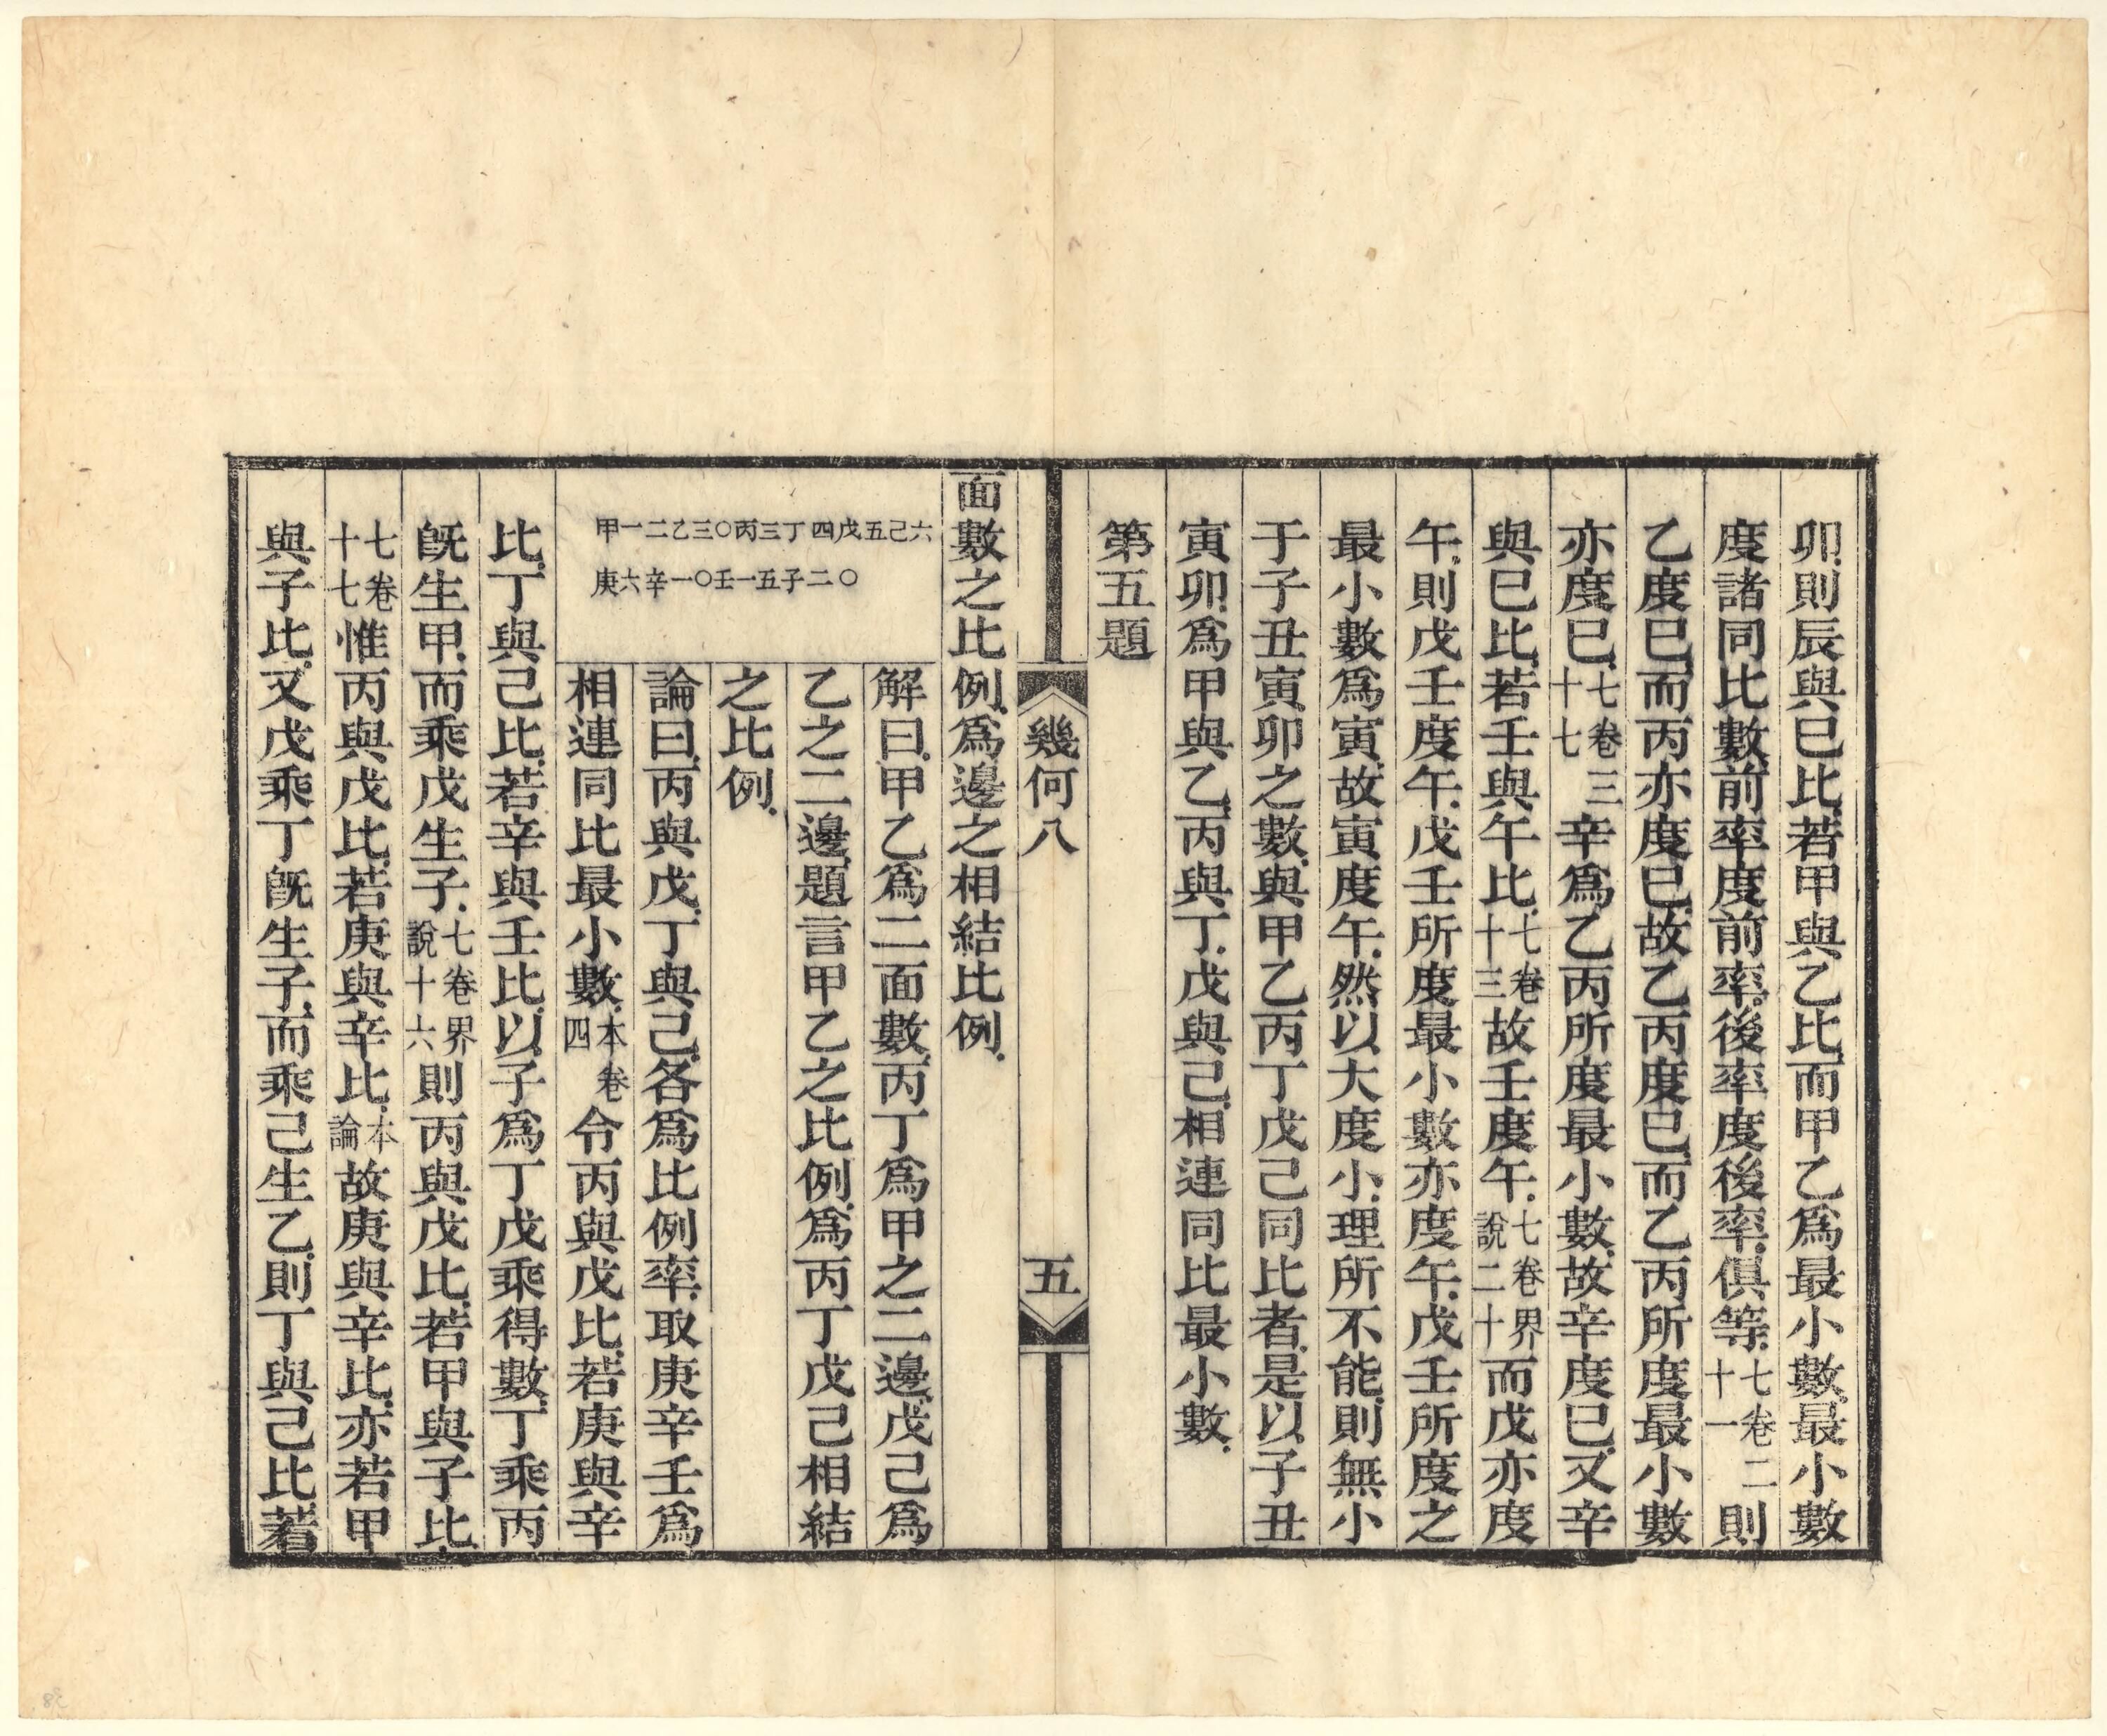 卯則辰與巳比若甲與乙比而甲乙爲最小數最小數
度諸同比數前率度前率後率度後率俱等七卷二十一則
乙度巳而丙亦度巳故乙丙度巳而乙丙所度最小數
亦度巳七卷三十七辛爲乙丙所度最小數故辛度巳又辛
與巳比若壬與午比七卷十三故壬度午七卷界說二十而戊亦度
午則戊壬度午戊壬所度最小數亦度午戊壬所度之
最小數爲寅故寅度午然以大度小理所不能則無小
于子丑寅卯之數與甲乙丙丁戊己同比者是以子丑
寅卯爲甲與乙丙與丁戊與己相連同比最小數
第五題
幾何八
五
面數之比例爲邊之相結比例
甲一二乙三〇丙三丁四戊五己六
庚六辛一〇壬一五子二〇
解曰甲乙爲二面數丙丁爲甲之二邊戊己爲
乙之二邊題言甲乙之比例爲丙丁戊己相結
之比例
論曰丙與戊丁與己各爲比例率取庚辛壬爲
相連同比最小數本卷四令丙與戊比若庚與辛
比丁與己比若辛與壬比以子爲丁戊乘得數丁乘丙
旣生甲而乘戊生子七卷界說十六則丙與戊比若甲與子比
七卷十七惟丙與戊比若庚與辛比本論故庚與辛比亦若甲
與子比又戊乘丁旣生子而乘己生乙則丁與己比若